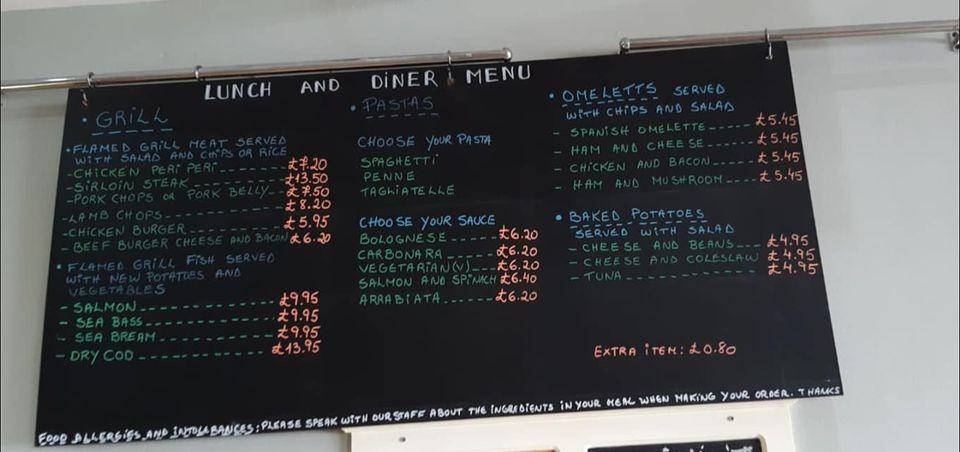 LUNCH AND DINER MENU
• GRILL
• FLAMED GRILL MEAT SERVED
WITH SALAD AND CHIPS OR RICE
- CHICKEN PERI PERI ----------- £7.20
- SIRLOIN STEAK ----------- £13.50
- PORK CHOPS OR PORK BELLY --- £7.50
- LAMB CHOPS ----------- £8.20
- CHICKEN BURGER ----------- £5.95
- BEEF BURGER CHEESE AND BACON £6.20
• FLAMED GRILL FISH SERVED
WITH NEW POTATOES AND
VEGETABLES
- SALMON ----------- £9.95
- SEA BASS ----------- £9.95
- SEA BREAM ----------- £9.95
- DRY COD ----------- £13.95
• PASTAS
CHOOSE YOUR PASTA
SPAGHETTI
PENNE
TAGLIATELLE
CHOOSE YOUR SAUCE
BOLOGNESE ----- £6.20
CARBONARA ---- £6.20
VEGETARIAN (V) --- £6.20
SALMON AND SPINACH £6.40
ARRABIATA ------ £6.20
• OMELETTS SERVED
WITH CHIPS AND SALAD
- SPANISH OMELETTE ----- £5.45
- HAM AND CHEESE ------ £5.45
- CHICKEN AND BACON ---- £5.45
- HAM AND MUSHROOM ---- £5.45
• BAKED POTATOES
SERVED WITH SALAD
- CHEESE AND BEANS --- £4.95
- CHEESE AND COLESLAW £4.95
- TUNA ----------- £4.95
EXTRA ITEM: £0.80
FOOD ALLERGIES AND INTOLERANCES: PLEASE SPEAK WITH OUR STAFF ABOUT THE INGREDIENTS IN YOUR MEAL WHEN MAKING YOUR ORDER. THANKS